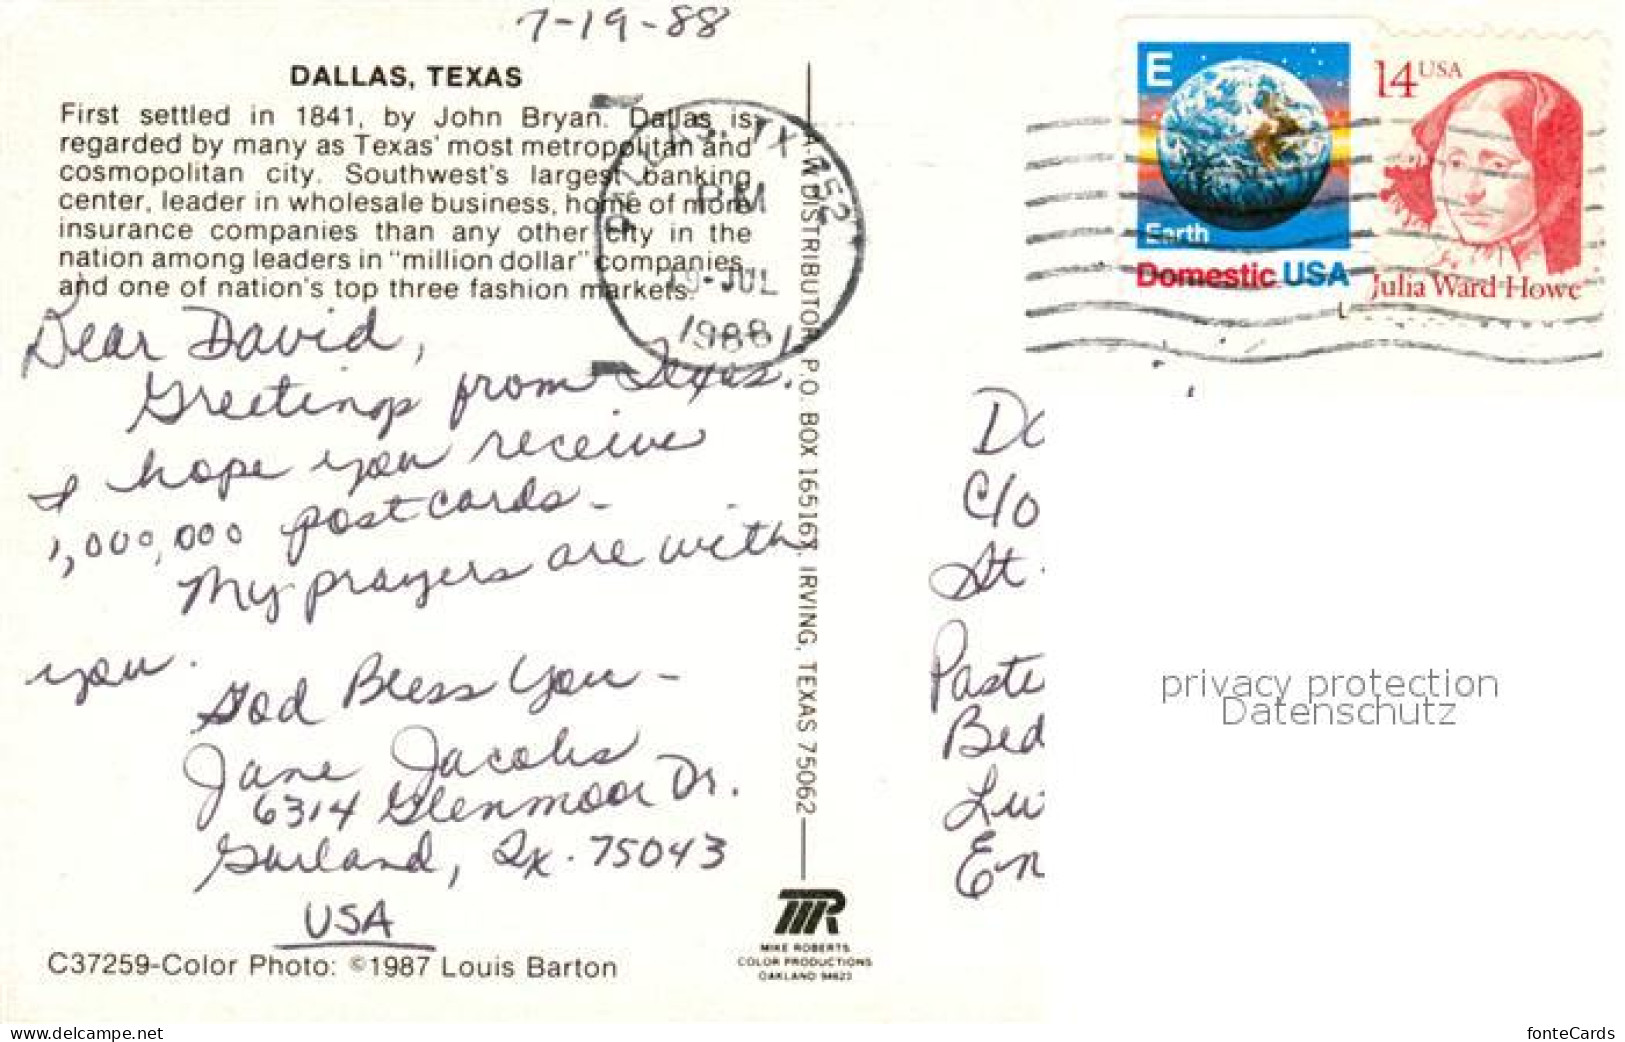 7-19-88
DALLAS, TEXAS
First settled in 1841, by John Bryan. Dallas is
regarded by many as Texas' most metropolitan and
cosmopolitan city. Southwest's largest banking
center, leader in wholesale business, home of more
insurance companies than any other city in the
nation among leaders in "million dollar" companies
and one of nation's top three fashion markets.
Dear David,
Greetings from Texas!
I hope you receive
1,000,000 postcards-
My prayers are with
you.
God Bless You-
Jane Jacobs
6314 Glenmoor Dr.
Garland, Tx. 75043
USA
C37259-Color Photo: ©1987 Louis Barton
TX 752
PM
JUL
1988
A.W DISTRIBUTOR, P.O. BOX 16516X, IRVING, TEXAS 75062
MIKE ROBERTS
COLOR PRODUCTIONS
OAKLAND 94623
E
Earth
Domestic USA
14 USA
Julia Ward Howe
C/o
St.
Paste
Bed
Lu
En
privacy protection
Datenschutz
www.delcampe.net
fonteCards